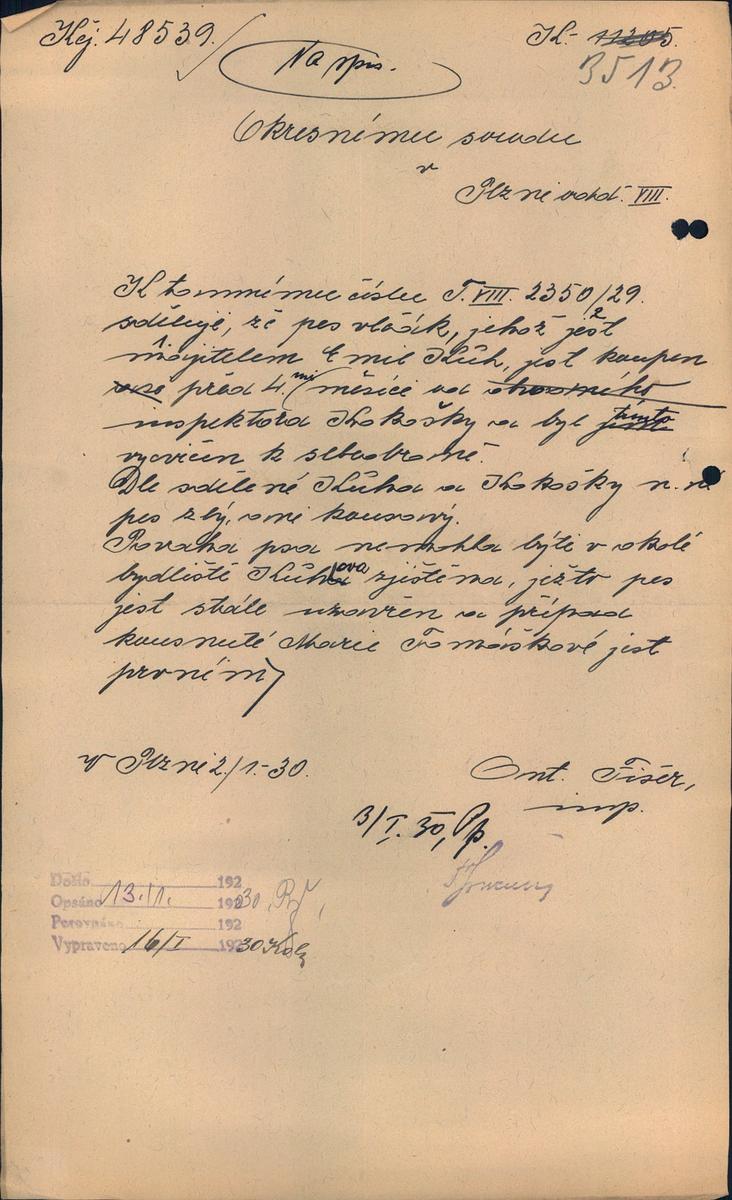 Kčj. 48539.
K.- 11305.
3513.
Na spis.
Okresnímu soudu
v
Plzni odd. VIII.
K tamnímu číslu T. VIII. 2350/29.
sděluji, že pes vlčák, jehož jest
majitelem Emil Kůh, jest koupen
asi před 4.mi měsíci od obvodního
inspektora Kokošky a byl tímto
vycvičen k sebeobraně.
Dle sdělení Kůha a Kokošky n. ní
pes zlý, ani kousavý.
Povaha psa nemohla býti v okolí
bydliště Kůhova zjištěna, ježto pes
jest stále uzavřen a případ
kousnutí Marie Tomáškové jest
prvním
V Plzni 2./1.-30.
Ont. Fišer,
insp.
3/I. 30, Pp.
Došlo 192
Opsáno 13./1. 1930
Porovnáno 192
Vypraveno 16/I 1930